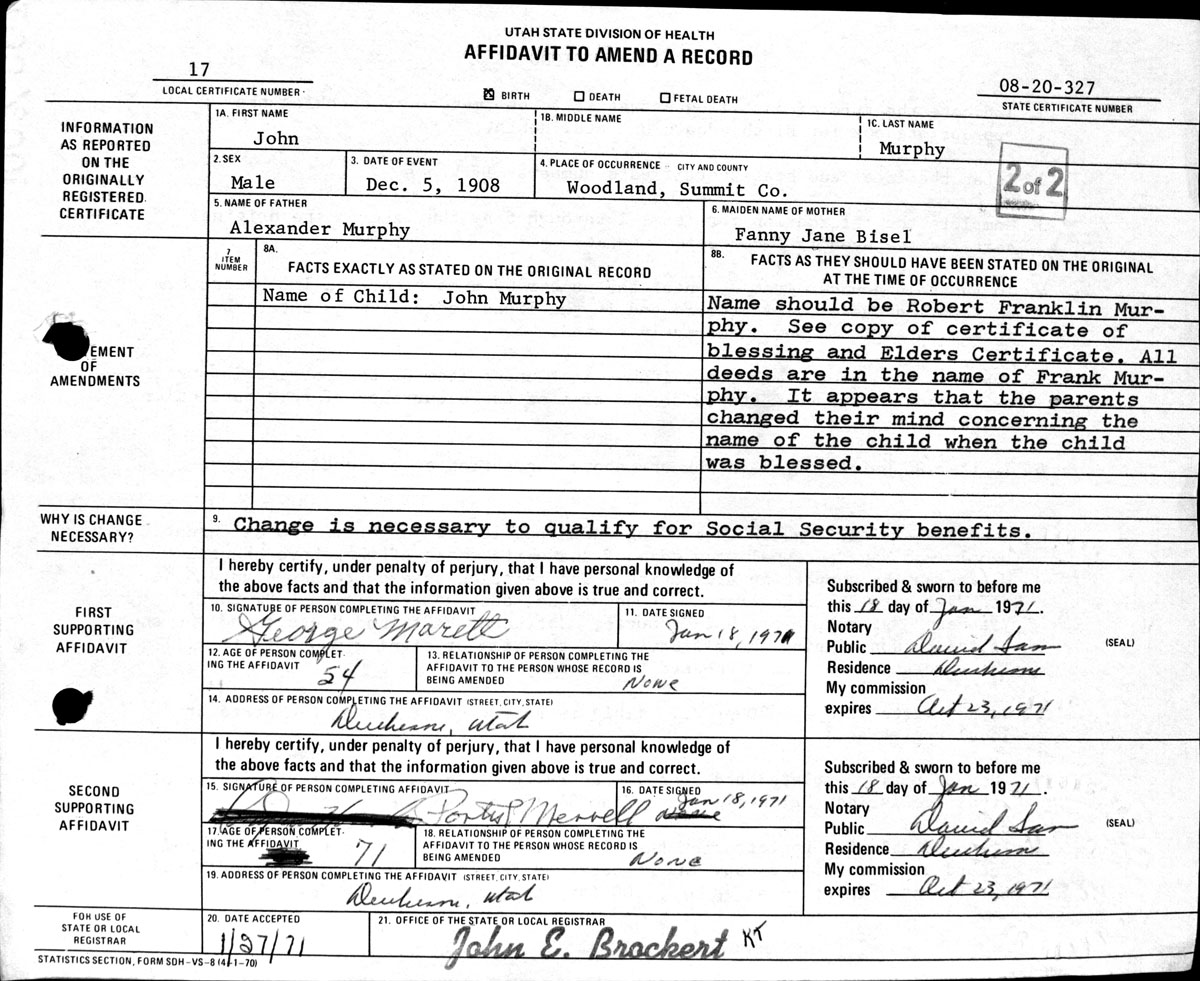 UTAH STATE DIVISION OF HEALTH
AFFIDAVIT TO AMEND A RECORD
17
LOCAL CERTIFICATE NUMBER
☒ BIRTH ☐ DEATH ☐ FETAL DEATH
08-20-327
STATE CERTIFICATE NUMBER
INFORMATION
AS REPORTED
ON THE
ORIGINALLY
REGISTERED
CERTIFICATE
1A. FIRST NAME
John
1B. MIDDLE NAME
1C. LAST NAME
Murphy
2. SEX
Male
3. DATE OF EVENT
Dec. 5, 1908
4. PLACE OF OCCURRENCE - CITY AND COUNTY
Woodland, Summit Co.
2 of 2
5. NAME OF FATHER
Alexander Murphy
6. MAIDEN NAME OF MOTHER
Fanny Jane Bisel
EMENT
OF
AMENDMENTS
7
ITEM
NUMBER
8A.
FACTS EXACTLY AS STATED ON THE ORIGINAL RECORD
Name of Child: John Murphy
8B.
FACTS AS THEY SHOULD HAVE BEEN STATED ON THE ORIGINAL
AT THE TIME OF OCCURRENCE
Name should be Robert Franklin Mur-
phy. See copy of certificate of
blessing and Elders Certificate. All
deeds are in the name of Frank Mur-
phy. It appears that the parents
changed their mind concerning the
name of the child when the child
was blessed.
WHY IS CHANGE
NECESSARY?
9. Change is necessary to qualify for Social Security benefits.
FIRST
SUPPORTING
AFFIDAVIT
I hereby certify, under penalty of perjury, that I have personal knowledge of
the above facts and that the information given above is true and correct.
10. SIGNATURE OF PERSON COMPLETING THE AFFIDAVIT
George Marett
11. DATE SIGNED
Jan 18, 1971
12. AGE OF PERSON COMPLET-
ING THE AFFIDAVIT
54
13. RELATIONSHIP OF PERSON COMPLETING THE
AFFIDAVIT TO THE PERSON WHOSE RECORD IS
BEING AMENDED
None
14. ADDRESS OF PERSON COMPLETING THE AFFIDAVIT (STREET, CITY, STATE)
Duchesne, Utah
Subscribed & sworn to before me
this 18 day of Jan 1971.
Notary
Public David Sam (SEAL)
Residence Duchesne
My commission
expires Oct 23, 1971
SECOND
SUPPORTING
AFFIDAVIT
I hereby certify, under penalty of perjury, that I have personal knowledge of
the above facts and that the information given above is true and correct.
15. SIGNATURE OF PERSON COMPLETING THE AFFIDAVIT
Merrell
16. DATE SIGNED
Jan 18, 1971
17. AGE OF PERSON COMPLET-
ING THE AFFIDAVIT
71
18. RELATIONSHIP OF PERSON COMPLETING THE
AFFIDAVIT TO THE PERSON WHOSE RECORD IS
BEING AMENDED
None
19. ADDRESS OF PERSON COMPLETING THE AFFIDAVIT (STREET, CITY, STATE)
Duchesne, Utah
Subscribed & sworn to before me
this 18 day of Jan 1971.
Notary
Public David Sam (SEAL)
Residence Duchesne
My commission
expires Oct 23, 1971
FOR USE OF
STATE OR LOCAL
REGISTRAR
20. DATE ACCEPTED
1/27/71
21. OFFICE OF THE STATE OR LOCAL REGISTRAR
John E. Brockert KT
STATISTICS SECTION, FORM SDH-VS-8 (4-1-70)